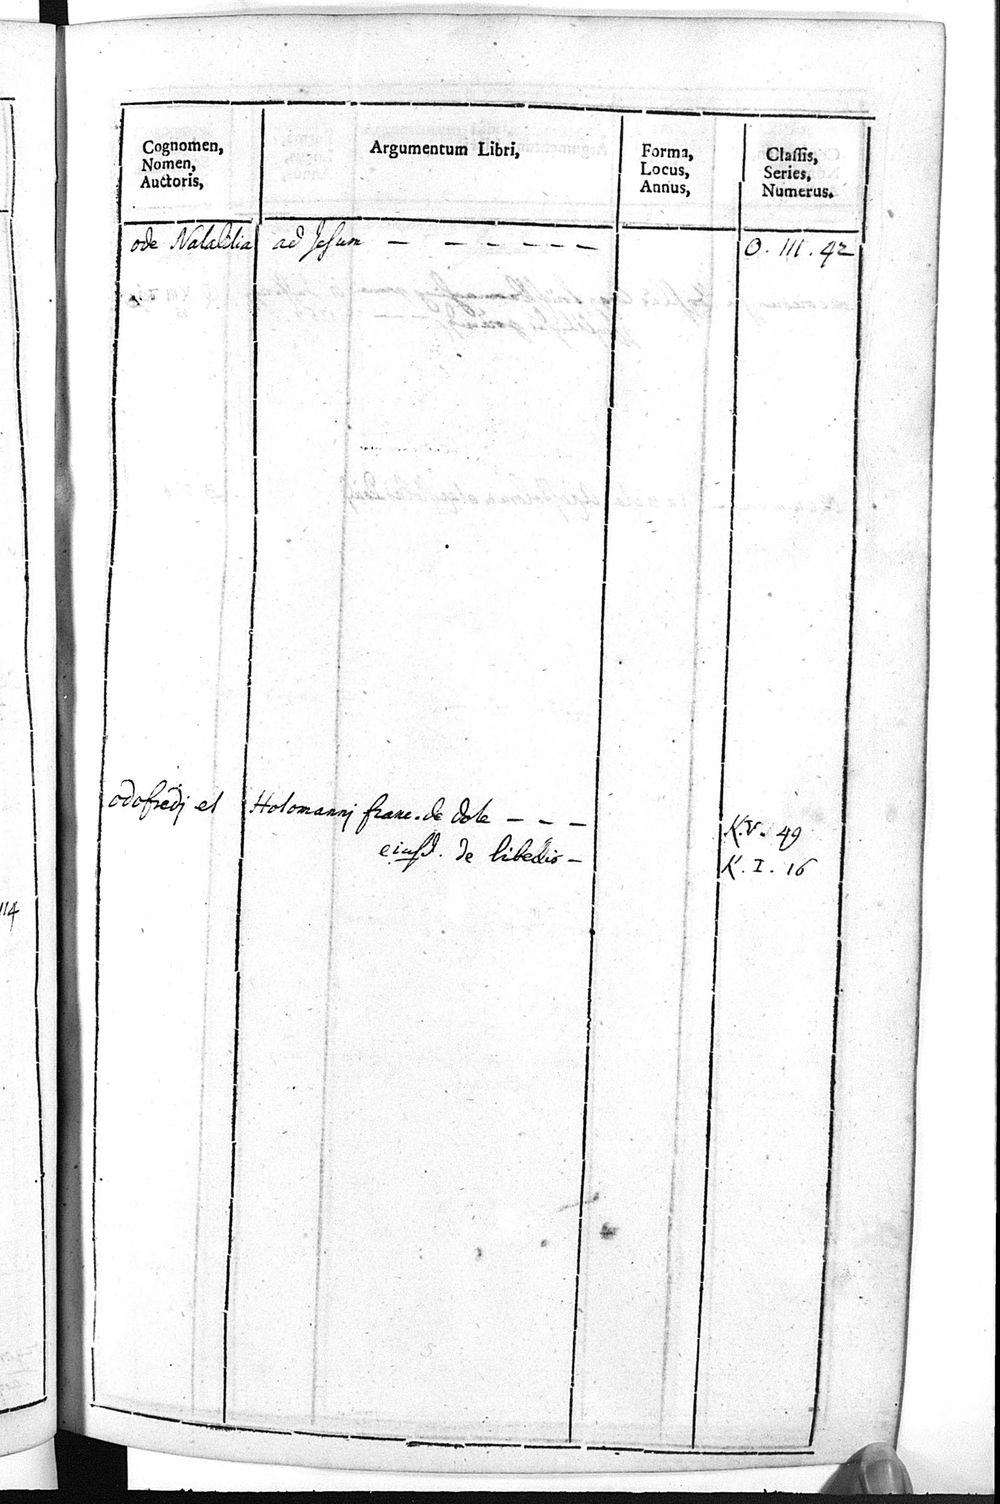 Cognomen,
Nomen,
Auctoris,
Argumentum Libri,
Forma,
Locus,
Annus,
Classis,
Series,
Numerus.
ode Natalitia ad Jesum — — — — — — O. III. 42
odofredj et Hotomannj franc. de dote — — — K.V. 49
eiusd. de libellis — K. I. 16
114